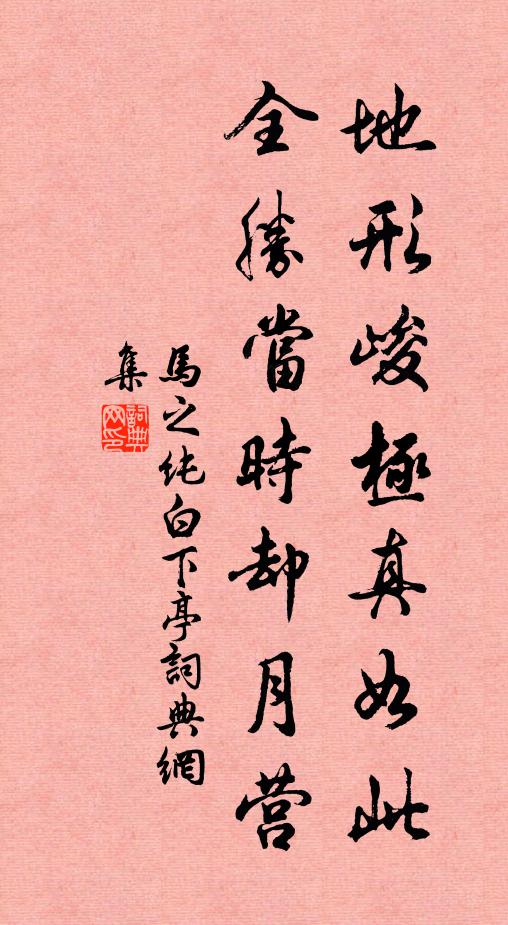 地形峻極真如此
全勝當時却月营
馬之純白下亭詞典網
集
詞典
网印